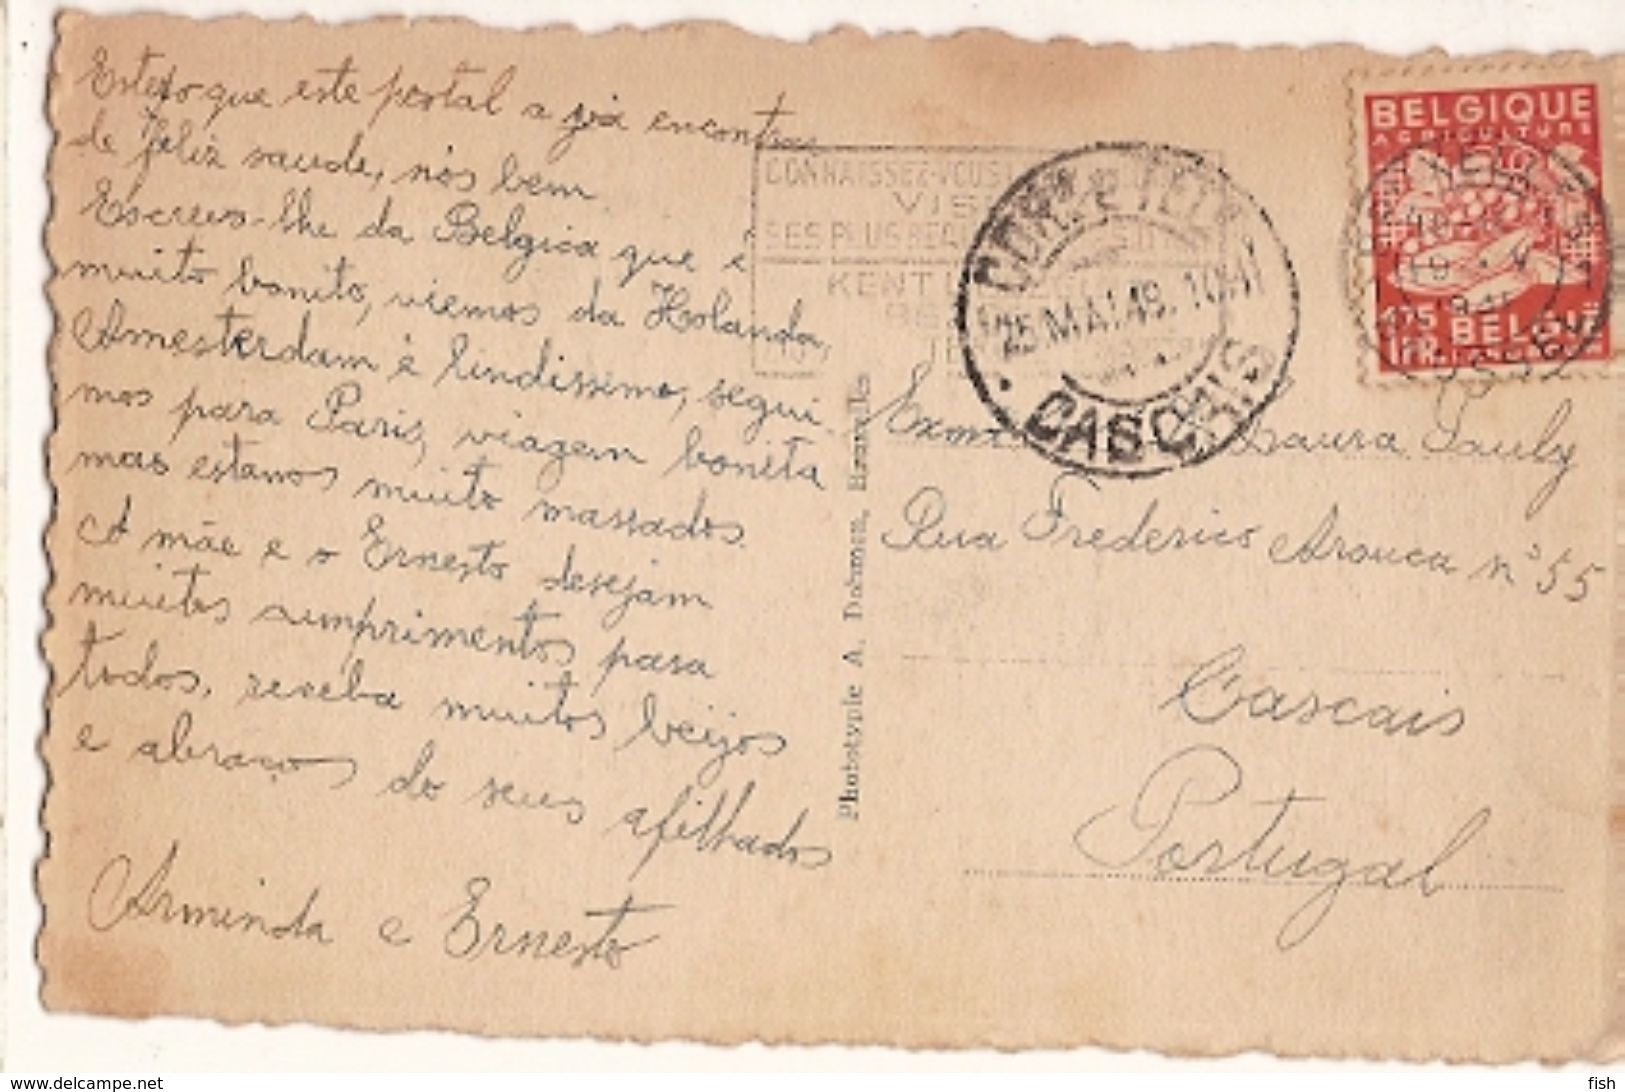 Estero que este postal a vá encontrar
de feliz saude, nós bem.
Escrevo-lhe da Belgica que é
muito bonito, viemos da Holanda,
Amesterdam é lindissimo, segui
mos para Paris, viagem bonita
mas estamos muito massados.
A mãe e o Ernesto desejam
muitos cumprimentos para
todos, receba muitos beijos
e abraços do seus afilhados
Arminda e Ernesto
Photostypie A. Dohmen, Bruxelles
CONNAISSEZ-VOUS
SES PLUS BEAUX
KENT U
CORREIO
25 MAI 49. 10
CASCAIS
BELGIQUE
AGRICULTURE
1FR.75 BELGIË
LANDBOUW
Laura Pauly
Rua Frederico Arouca nº 55
Cascais
Portugal
delcampe.net
fish